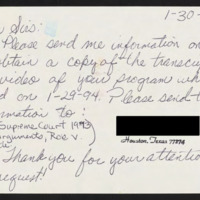 1-30-
Sirs:
Please send me information on
obtain a copy of the transcript
video of your program wh
d on 1-29-94. Please send t
ormation to:
Supreme Court 1993
arguments, Roe v.
Houston, Texas 77098
Thank you for your attentio
request!